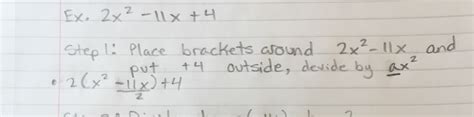 Ex. 2x² -11x +4
Step 1: Place brackets around 2x²-11x and
put +4 outside, devide by ax²
• 2(x² -11x/2)+4